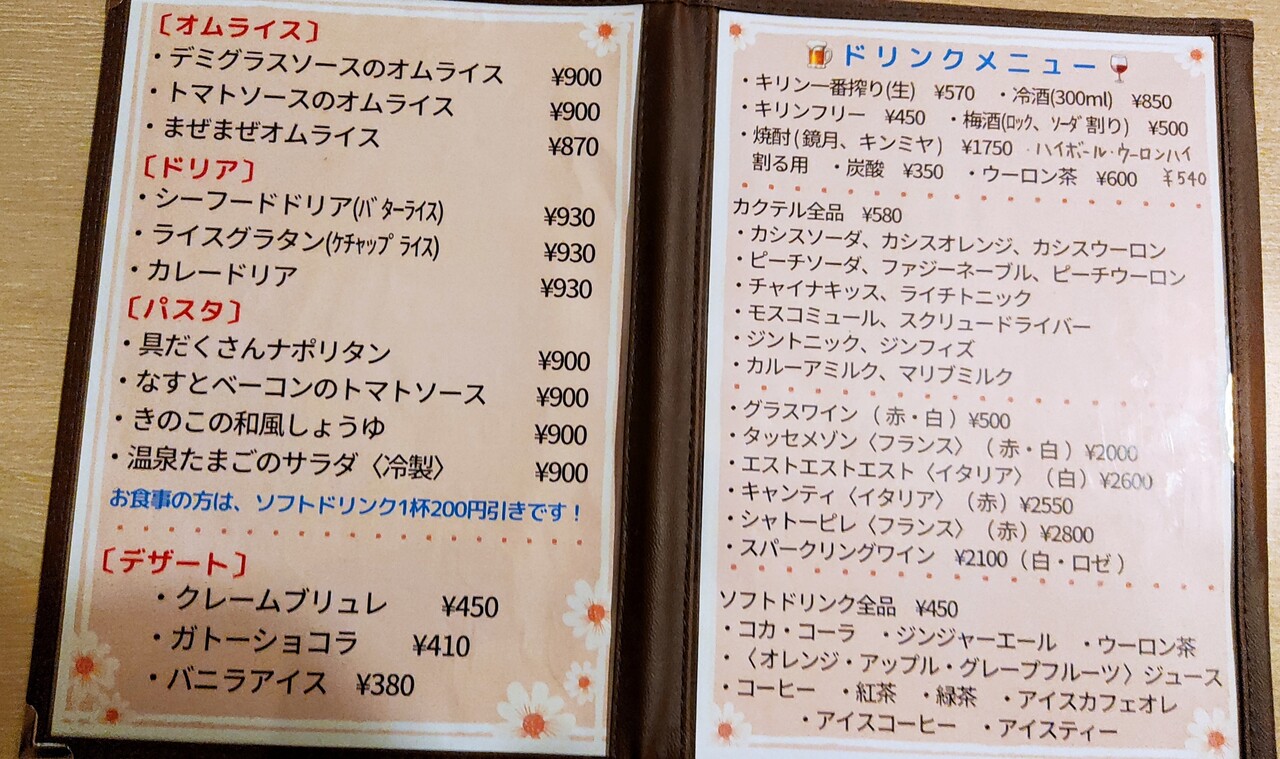 〔オムライス〕
・デミグラスソースのオムライス ¥900
・トマトソースのオムライス ¥900
・まぜまぜオムライス ¥870
〔ドリア〕
・シーフードドリア(ﾊﾞﾀｰﾗｲｽ) ¥930
・ライスグラタン(ｹﾁｬｯﾌﾟﾗｲｽ) ¥930
・カレードリア ¥930
〔パスタ〕
・具だくさんナポリタン ¥900
・なすとベーコンのトマトソース ¥900
・きのこの和風しょうゆ ¥900
・温泉たまごのサラダ〈冷製〉 ¥900
お食事の方は、ソフトドリンク1杯200円引きです！
〔デザート〕
・クレームブリュレ ¥450
・ガトーショコラ ¥410
・バニラアイス ¥380
ドリンクメニュー
・キリン一番搾り(生) ¥570 ・冷酒(300ml) ¥850
・キリンフリー ¥450 ・梅酒(ﾛｯｸ、ｿｰﾀﾞ割り) ¥500
・焼酎(鏡月、キンミヤ) ¥1750 ・ハイボール・ウーロンハイ
割る用 ・炭酸 ¥350 ・ウーロン茶 ¥600 ¥540
カクテル全品 ¥580
・カシスソーダ、カシスオレンジ、カシスウーロン
・ピーチソーダ、ファジーネーブル、ピーチウーロン
・チャイナキッス、ライチトニック
・モスコミュール、スクリュードライバー
・ジントニック、ジンフィズ
・カルーアミルク、マリブミルク
・グラスワイン（赤・白）¥500
・タッセメゾン〈フランス〉（赤・白）¥2000
・エストエストエスト〈イタリア〉（白）¥2600
・キャンティ〈イタリア〉（赤）¥2550
・シャトーピレ〈フランス〉（赤）¥2800
・スパークリングワイン ¥2100（白・ロゼ）
ソフトドリンク全品 ¥450
・コカ・コーラ ・ジンジャーエール ・ウーロン茶
・〈オレンジ・アップル・グレープフルーツ〉ジュース
・コーヒー ・紅茶 ・緑茶 ・アイスカフェオレ
・アイスコーヒー ・アイスティー